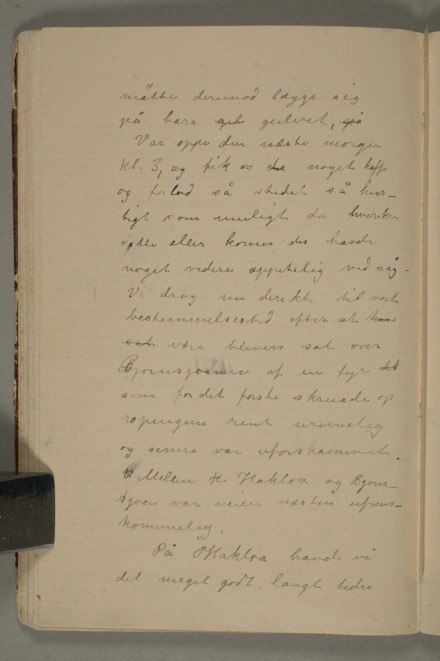 måtte derimod lægge sig
på bare gulvet,
Var oppe den næste morgen
kl. 3, og fik os noget kaff
og forlod så stedet så hur-
tigt som muligt da hverken
eller konen der havde
noget videre appetelig ved sig.
Vi drog nu direkte til vort
bestemmelsessted efter at have
været blevene sat over
Bjørnsjøen af en fyr
som for det første skruede op
rent urimelig
og senere var uforskammet.
Mellem Hakloa og Bjørn-
sjøen var veien næsten ufrem-
kommelig.
På Hakloa havde vi
det meget godt, langt bedre